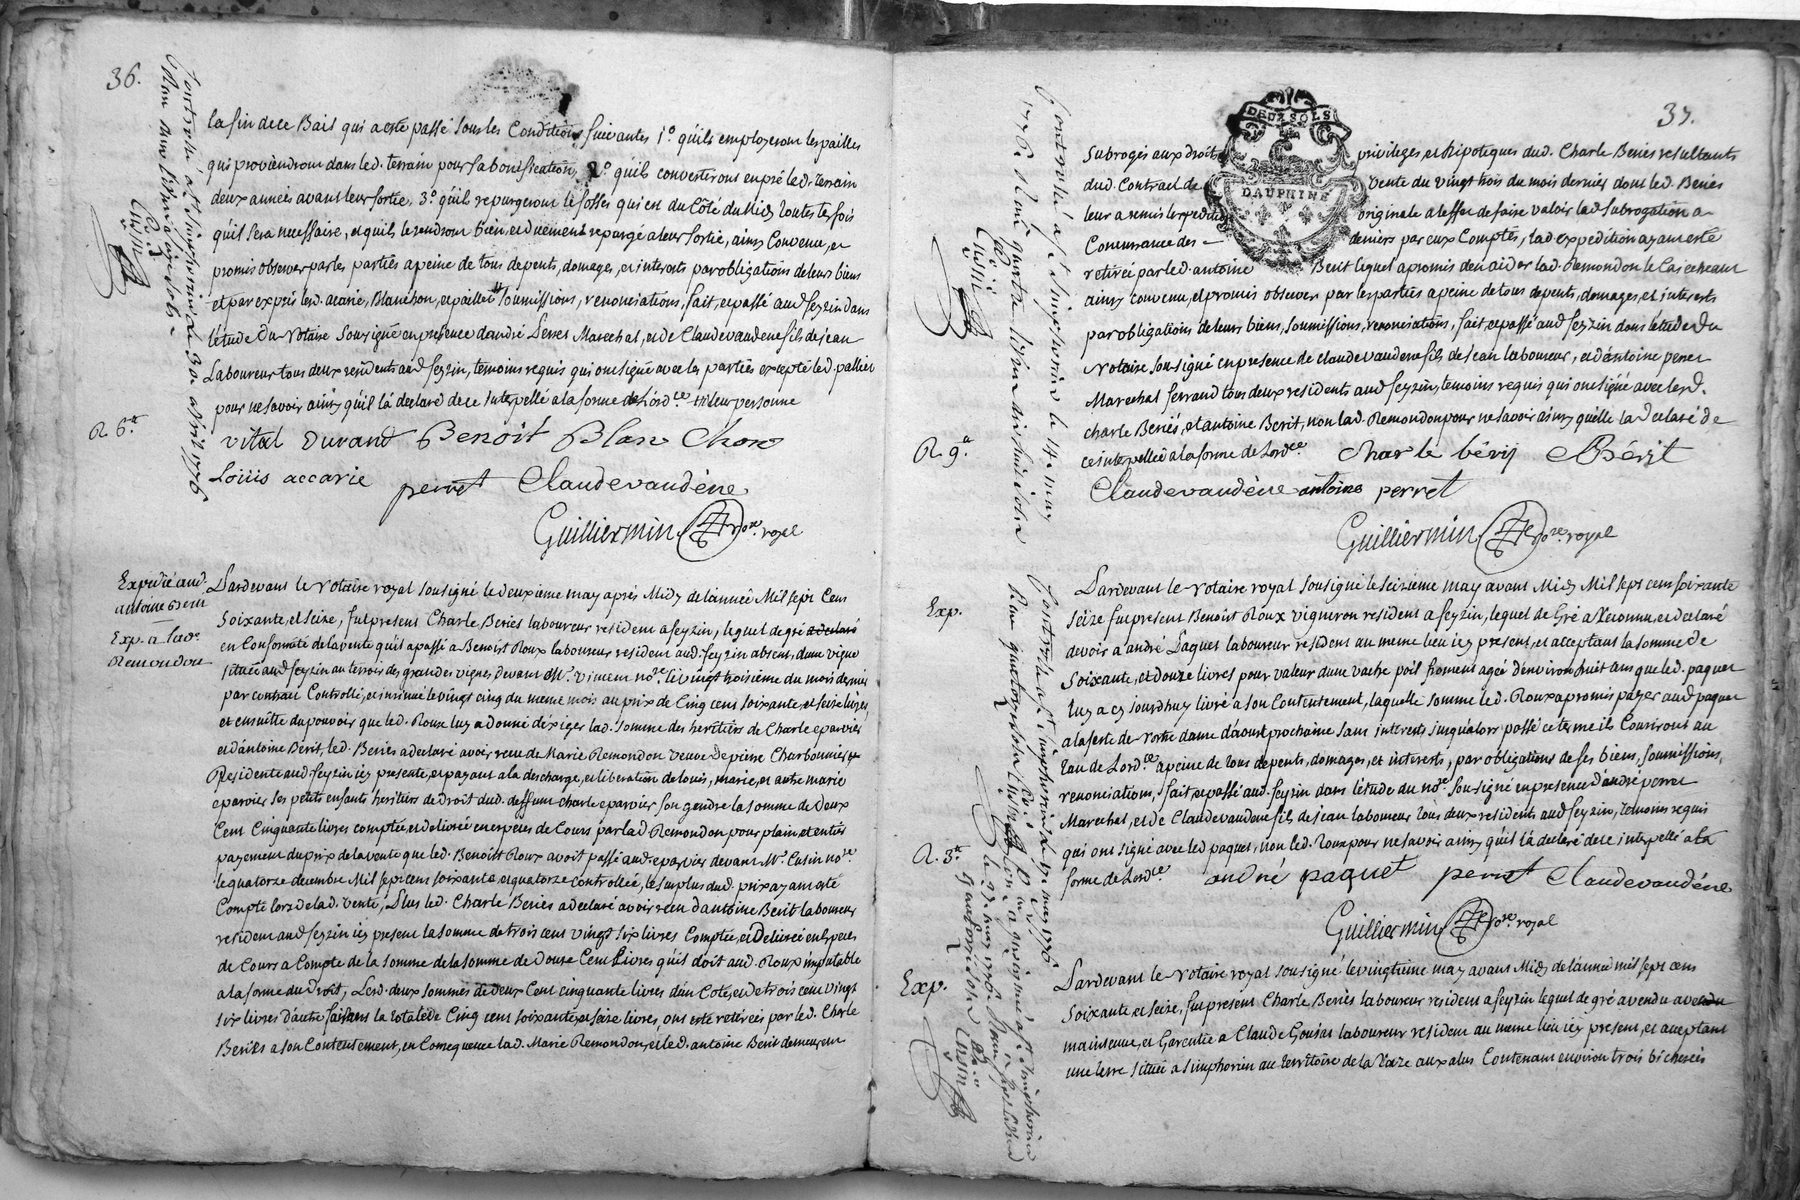 36.
la fin de ce Bail qui a esté passé sous les Conditions suivantes 1° quils employeront les pailles
qui proviendront dans led. terrain pour sa bonnification, 2° quils convertiront en pré led. terrain
deux années avant leur sortie, 3° quil repurgeront le fossés qui est du Côté du Midy toutes les fois
quil sera necessaire, et quils le rendront bien, et duement repurgé a leur sortie, ainsy Convenu, et
promis observer par les parties a peine de tous depents, domages, et interests par obligations de leurs biens
et par exprès lesd. acarie, Blanchon, et pallier soumissions, renonciations, fait, et passé aud. feyzin dans
létude du Notaire Sousigné en presence dandré Perret Marechal, et de Claude vaudene fils de jean
Laboureur tous deux residents aud. feyzin, temoins requis qui ont signé avec les parties excepté led. pallier
pour ne savoir ainsy quil là declaré de ce interpellé a la forme de Lord.ce en leur personne
R. 6.
vital Durand Benoit Blanchon
Louis accarie perret Claude vaudéne
Guilliermin no.re royal
Expedié aud.
antoine Berit
Exp. a lad.e
Remondon
Pardevant le Notaire royal sousigné le deuxieme may aprés Midy de lannée Mil sept Cent
Soixante, et seize, fut present Charle Beriés laboureur resident a feyzin, lequel de gré a declaré
en Conformité de la vente quil a passé a Benoist Roux laboureur resident aud. feyzin absent, dune vigne
située aud. feyzin au terroir des grandes vignes devant Mr. vincent no.re le vingt troisieme du mois dernier
par contract Controllé, et insinué le vingt cinq du meme mois au prix de Cinq cent soixante, et seize livres
et ensuitte du pouvoir que led. Roux luy a donné d'exiger lad. somme des heritiers de Charle eparvier
et dántoine Berit, led. Beriés a declaré avoir receu de Marie Remondon veuve de pierre Charbonnier
Residente aud. feyzin icy presente, et payant a la decharge, et liberation de louis, marie, et autre marie
eparvier ses petits enfants heritiers de Droit dud. deffunt charle eparvier son gendre la somme de Deux
Cent Cinquante livres comptée, et delivrée en especes de Cours par lad. Remondon pour plain, et entier
payement du prix de la vente que led. Benoist Roux avoit passé aud. eparvier devant Mr. Cusin no.re
le quatorze decembre Mil sept cent soixante et quatorze controllée, le surplus dud. prix ayant été
Compté lors de lad. vente, Plus led. Charle Beriés a declaré avoir receu d'antoine Berit laboureur
resident aud. feyzin icy present la somme de trois cent vingt six livres Comptée, et Delivrée en Especes
de Cours a Compte de la somme de la somme de Douze Cent Livres quil doit aud. Roux imputable
a la forme du Droit, Lesd. deux sommes de deux Cent cinquante livres dun Coté, et de trois cent vingt
six livres d'autre faisant la totale de Cinq cent soixante, et seize livres, ont esté retirées par led. Charle
Beriés a son Contentement, en Consequence lad. Marie Remondon, et led. antoine Berit demeurent
37.
DEUX SOLS
DAUPHINÉ
subrogés aux droits privileges, et hipoteques dud. Charle Beriés resultants
dud. Contract de vente du vingt trois du mois dernier dont led. Beriés
leur a remis lexpedition originale a leffet de faire valoir lad. subrogation a
Concurrance des deniers par eux Comptés, lad. expedition ayant esté
retirée par led. antoine Berit lequel a promis den aider lad. Remondon le Cas echeant
ainsy convenu, et promis observer par les parties a peine de tous depents, domages, et interests
par obligations de leurs biens, soumissions, renonciations, fait, et passé aud. feyzin dans létude du
Notaire sousigné en presence de claude vaudene fils de jean laboureur, et dántoine perret
Marechal ferrand tous deux residents aud. feyzin, temoins requis qui ont signé avec lesd.
charle Beriés, et antoine Berit, non lad. Remondon pour ne savoir ainsy quelle la declaré de
R. 9.
ce interpellée a la forme de Lord.ce charle bérij Bérit
Claude vaudéne antoine perret
Guilliermin no.re royal
Exp.
Pardevant le Notaire royal sousigné le seizieme may avant Midy Mil sept cent soixante
seize fut present Benoist Roux vigneron resident a feyzin, lequel de gré a Reconnu, et declaré
devoir a andré Paquet laboureur resident au meme lieu icy present, et acceptant la somme de
soixante, et douze livres pour valeur dune vache poil froment agée d'environ huit ans que led. paquet
luy a cy jourdhuy livré a son Contentement, laquelle somme led. Roux a promis payer aud. paquet
a la feste de Notre dame d'aoust prochaine sans interests jusqu'alors passé ce terme ils Couriront au
taux de Lord.ce a peine de tous depents, domages, et interests, par obligations de ses biens, soumissions,
renonciations, fait, et passé aud. feyzin dans létude du no.re sousigné en presence dandré perret
Marechal, et de Claude vaudene fils de jean laboureur tous deux residents aud. feyzin, temoins requis
qui ont signé avec led. paquet, non led. Roux pour ne savoir ainsy quil là declaré de ce interpellé a la
R. 3.
forme de Lord.ce andré paquet perret Claude vaudéne
Guilliermin no.re royal
Exp.
Pardevant le Notaire royal sousigné le vingtieme may avant Midy de lannée mil sept cent
soixante, et seize, fut present Charle Beriés laboureur resident a feyzin lequel de gré a vendu avec
maintenue, et Garentie a Claude Gonin laboureur resident au meme lieu icy present, et acceptant
une terre située a simphorien au territoire de la Raze aux alus Contenant environ trois bicherées